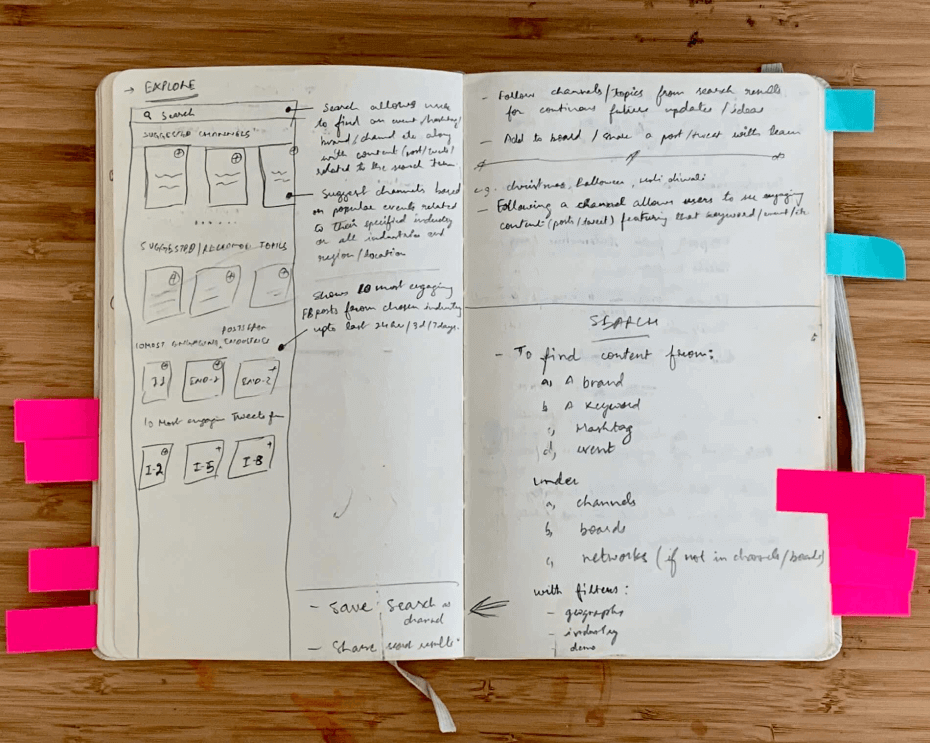 → EXPLORE
Search
SUGGESTED CHANNELS
SUGGESTED / TOPICS
10 MOST ENGAGING
END-2
10 Most engaging Tweets
I-2
I-5
I-8
Search allows user
to find an event/hashtag/
brand/channel etc along
with content (post/tweets)
related to the search term
Suggest channels based
on popular events related
to their specified industry
or all industries and
region/location
Shows 10 most engaging
FB posts from chosen industry
upto last 24hr/3d/7days.
- Save Search as
channel
- Share results
- Follow channels/topics from search results
for continous future updates/ideas
- Add to board / Share a post/tweet with team
e.g. christmas, halloween, diwali
- Following a channel allows users to see engaging
content (posts/tweet) featuring that keyword/event/etc.
SEARCH
- To find content from:
a, A brand
b, A Keyword
c, Hashtag
d, event
under
a, channels
b, boards
c, networks (if not in channels/boards)
with filters:
- geography
- industry
- demo